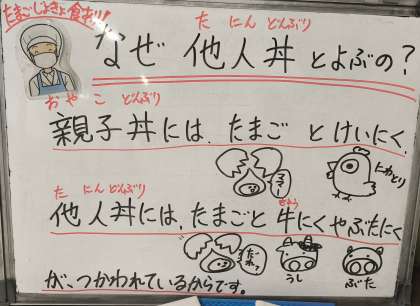 たまごしょきょ食あり!
たにんどんぶり
なぜ 他人丼とよぶの?
おやこ どんぶり
親子丼には、たまご とけいにく、
にわとり
たにんどんぶり
他人丼には、たまごと 牛にくやぶたにく
ぎゅう
だれ?
うし
ぶた
が、つかわれているからです。